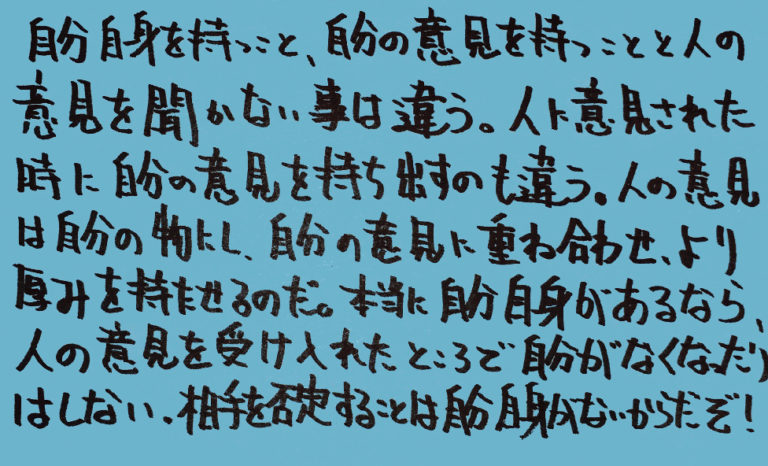 自分自身を持つこと、自分の意見を持つことと人の
意見を聞かない事は違う。人に意見された
時に自分の意見を持ち出すのも違う。人の意見
は自分の物にし、自分の意見に重ね合わせ、より
厚みを持たせるのだ。本当に自分自身があるなら、
人の意見を受け入れたところで自分がなくなったり
はしない。相手を否定することは自分自身がないからだぞ！